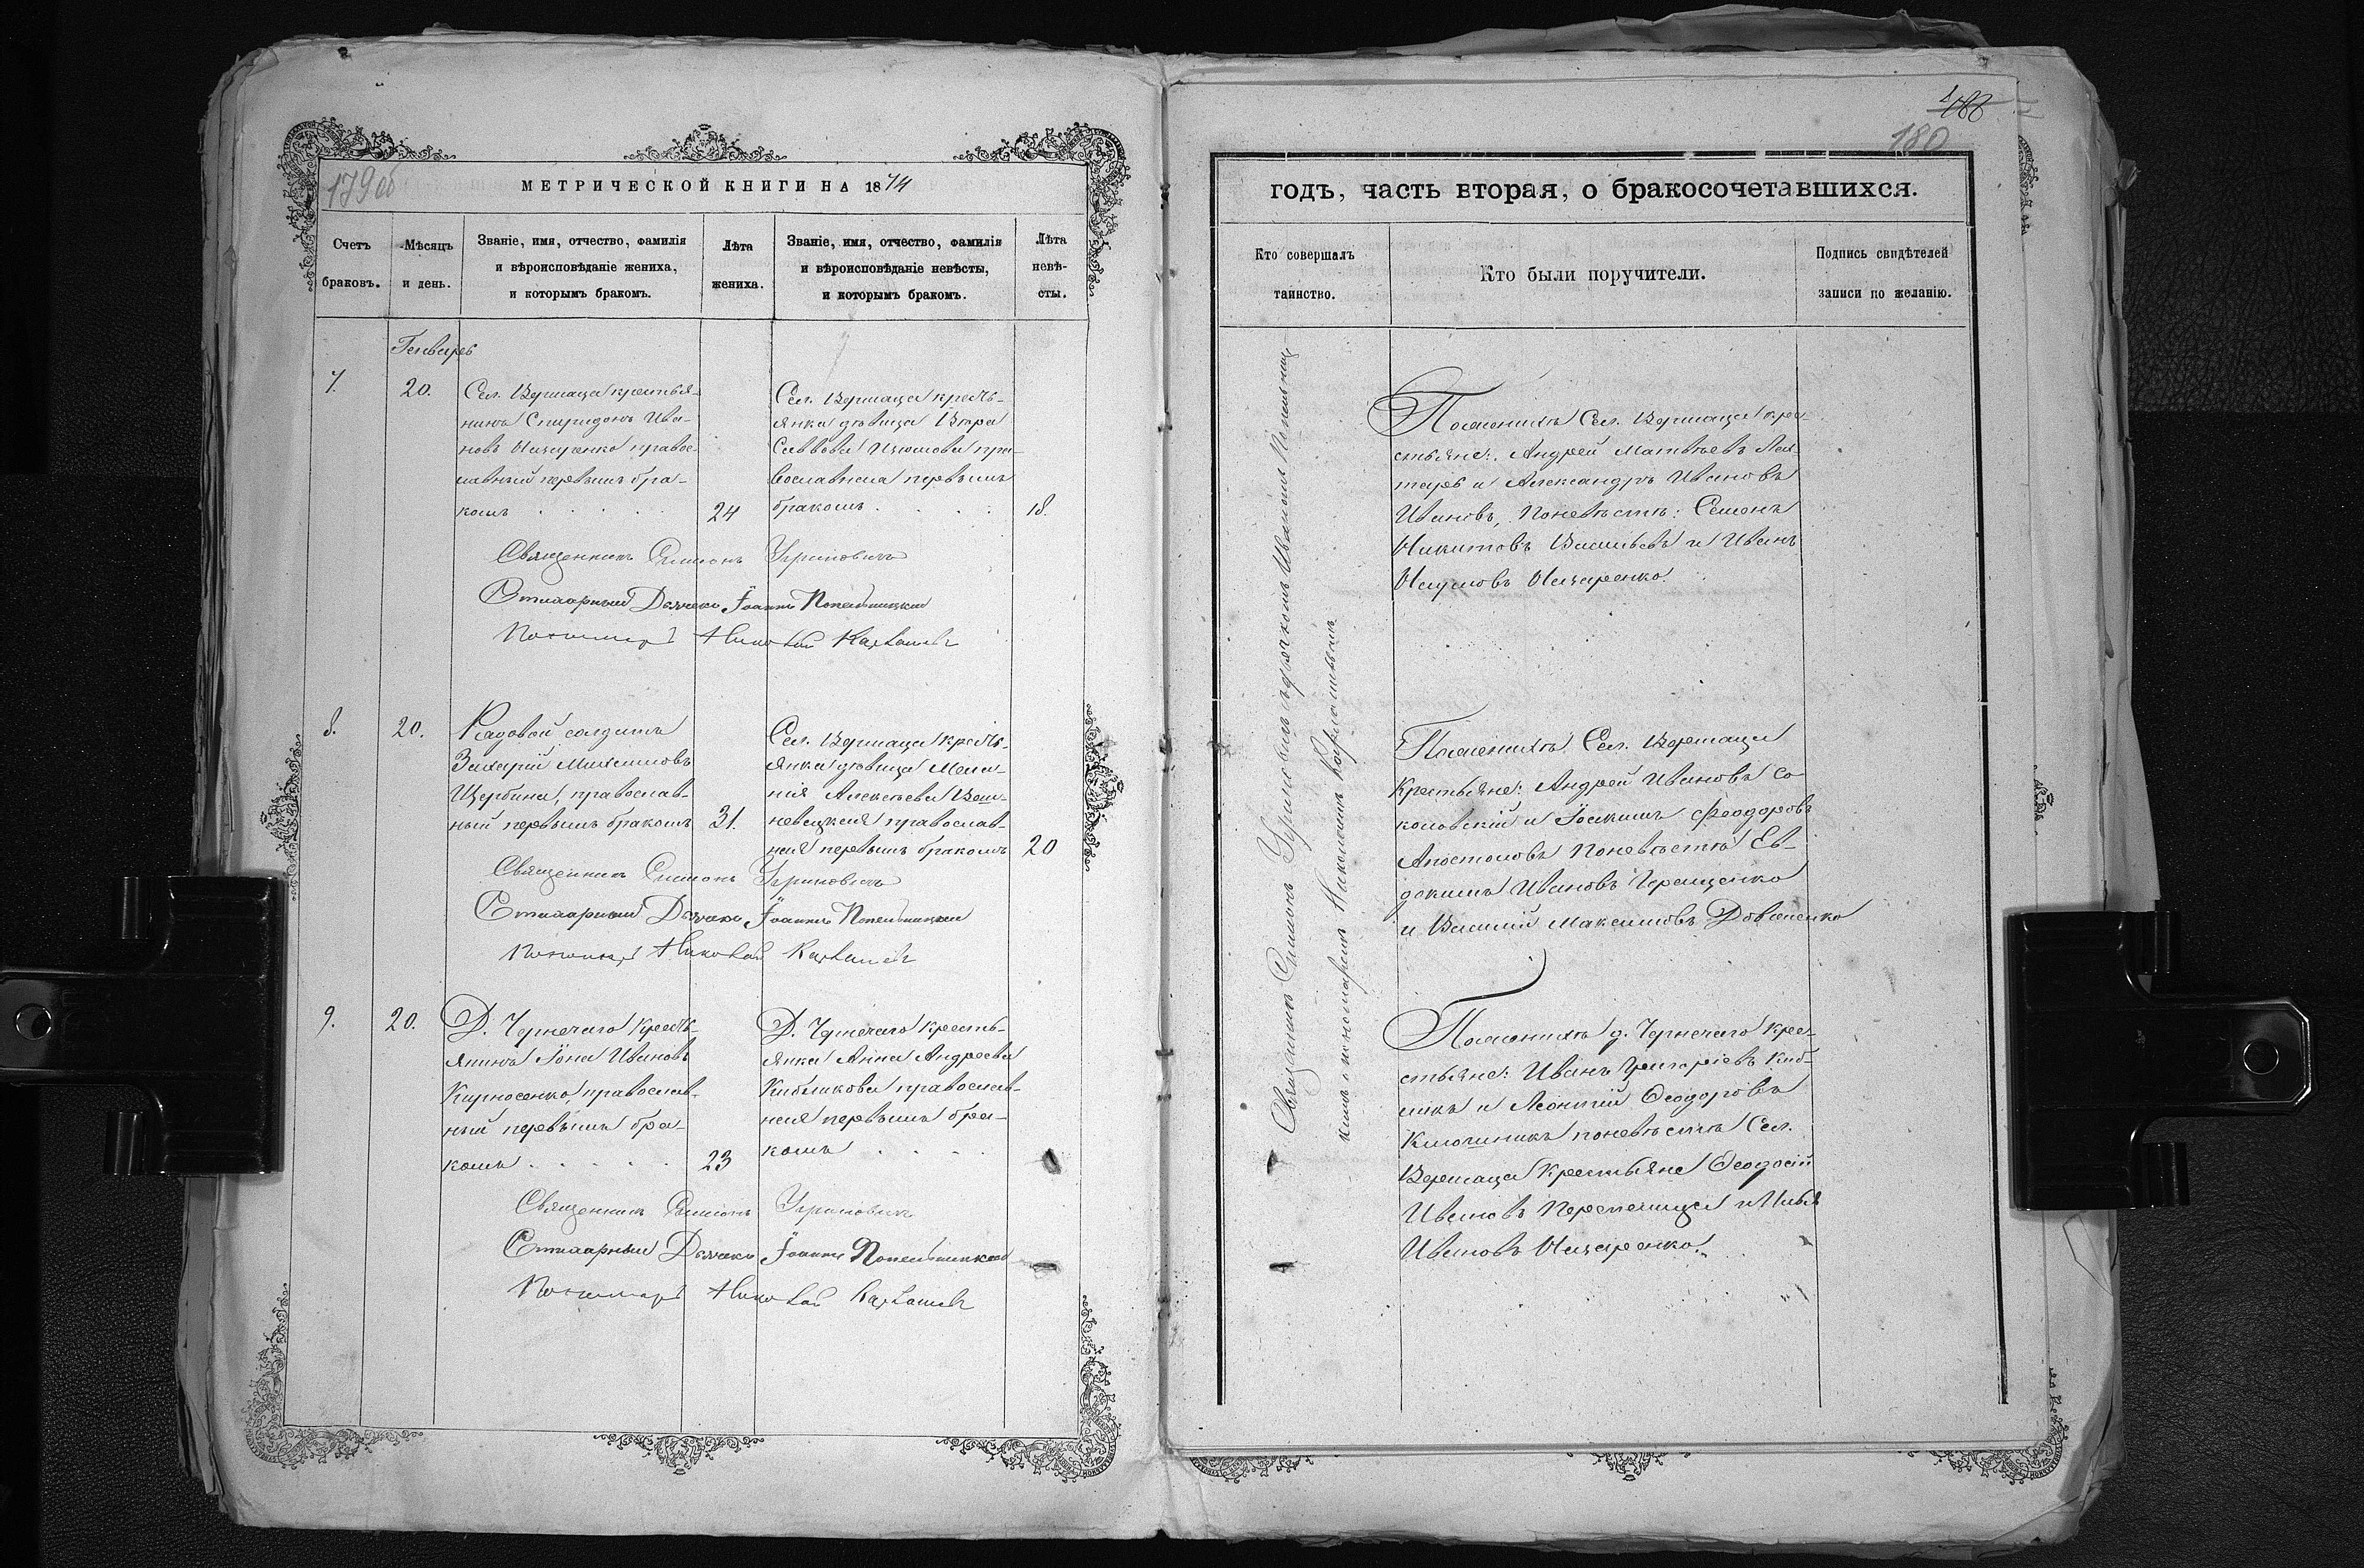 179об
МЕТРИЧЕСКОЙ КНИГИ НА 1874
Счетъ браковъ.
Мѣсяцъ и день.
Званіе, имя, отчество, фамилія
и вѣроисповѣданіе жениха,
и которымъ бракомъ.
Лѣта
жениха.
Званіе, имя, отчество, фамилія
и вѣроисповѣданіе невѣсты,
и которымъ бракомъ.
Лѣта
невѣ-
сты.
Генварь
7.
20.
Сел. Вермаца крестья-
нинъ Спиридонъ Ива-
новъ Назаренко правос-
лавный первымъ бра-
комъ
24
Сел. Вермаца кресть-
янка дѣвица Вѣра
Саввова Изюмова пра-
вославная первымъ
бракомъ
18.
Священникъ Симеонъ
Стихарный Дьячекъ Іоаннъ
Николай
8.
20.
Рядовой солдатъ
Захарій Михаиловъ
Щербина, православ-
ный первымъ бракомъ
31.
Сел. Вермаца кресть-
янка дѣвица Мела-
нія Алексѣева
православ-
ная первымъ бракомъ
20
Священникъ Симеонъ
Стихарный Дьячекъ Іоаннъ
Николай
9.
20.
Д. Чернечаго кресть-
янинъ Іона Ивановъ
Кирносенко, православ-
ный первымъ бра-
комъ
23
Д. Чернечаго кресть-
янка Анна Андреева
Кибликова православ-
ная первымъ бра-
комъ
Священникъ Симеонъ
Стихарный Дьячекъ Іоаннъ
Николай
188
180
годъ, часть вторая, о бракосочетавшихся.
Кто совершалъ
таинство.
Кто были поручители.
Подпись свидѣтелей
записи по желанію.
Священникъ Симеонъ съ дьячкомъ Иваномъ
кимъ и пономаремъ Николаемъ
По женихѣ Сел. Вермаца кре-
стьяне: Андрей Матвѣевъ
и Александръ Ивановъ
Ивановъ, По невѣстѣ: Семенъ
Никитовъ Васильевъ и Иванъ
Наумовъ Назаренко.
По женихѣ Сел. Вермаца
Крестьяне: Андрей Ивановъ Со-
коловскій и Іоакимъ Феодоровъ
Апостоловъ По невѣстѣ Ев-
докимъ Ивановъ Геращенко
и Василій Максимовъ Довженко
По женихѣ д. Чернечаго кре-
стьяне: Иванъ Григоріевъ Киб-
ликъ и Леонтій Ѳеодоровъ
по невѣстѣ Сел.
Вермаца Крестьяне Ѳеодосій
Ивановъ Перепелица и Илья
Ивановъ Назаренко.